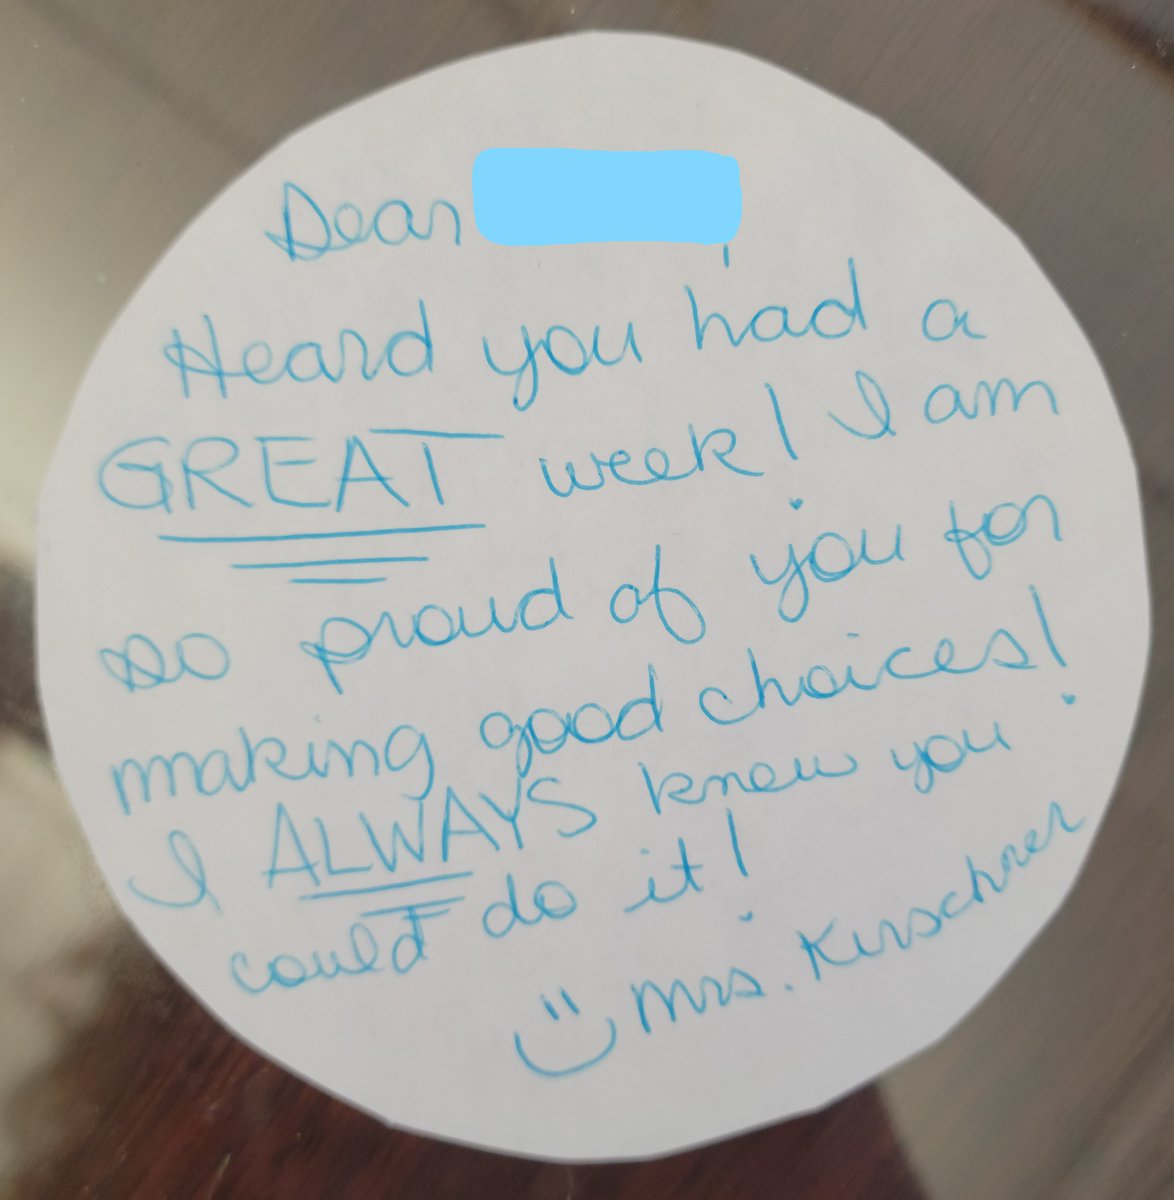 Dear ,
Heard you had a
GREAT week! I am
so proud of you for
making good choices!
I ALWAYS knew you
could do it!
Mrs. Kirschner